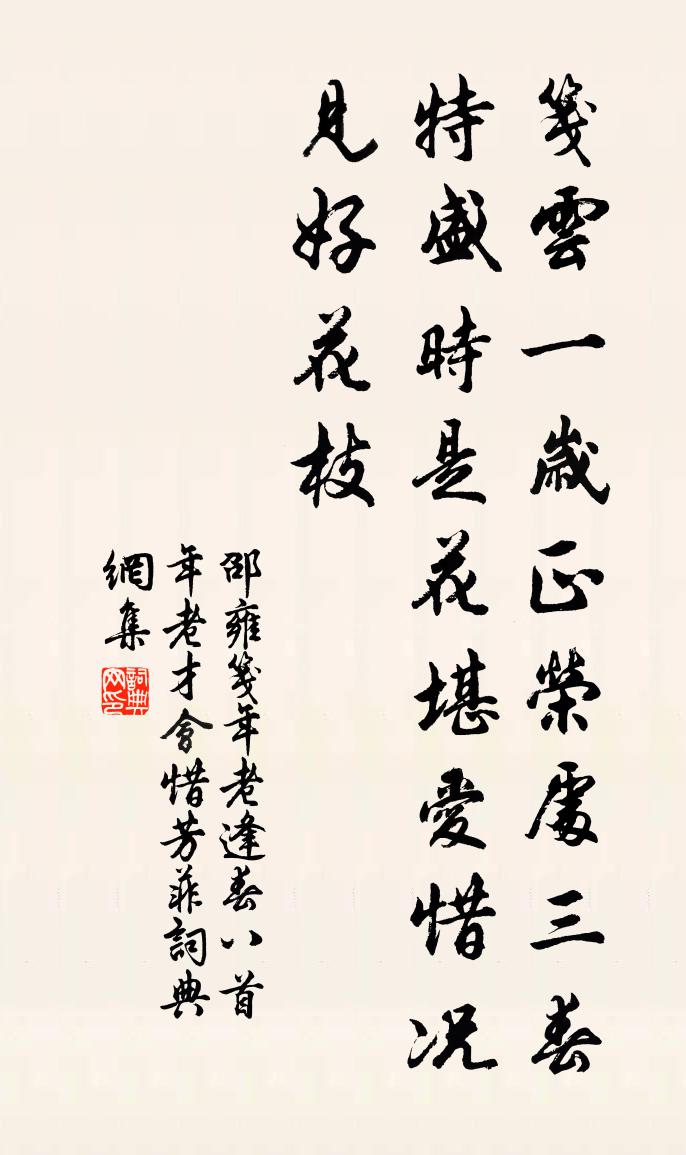 箋雲一歲正榮處三春
特盛時是花堪愛惜况
見好花枝
邵雍箋年老逢春八首
年老才會惜芳菲詞典
網集
詞典网印